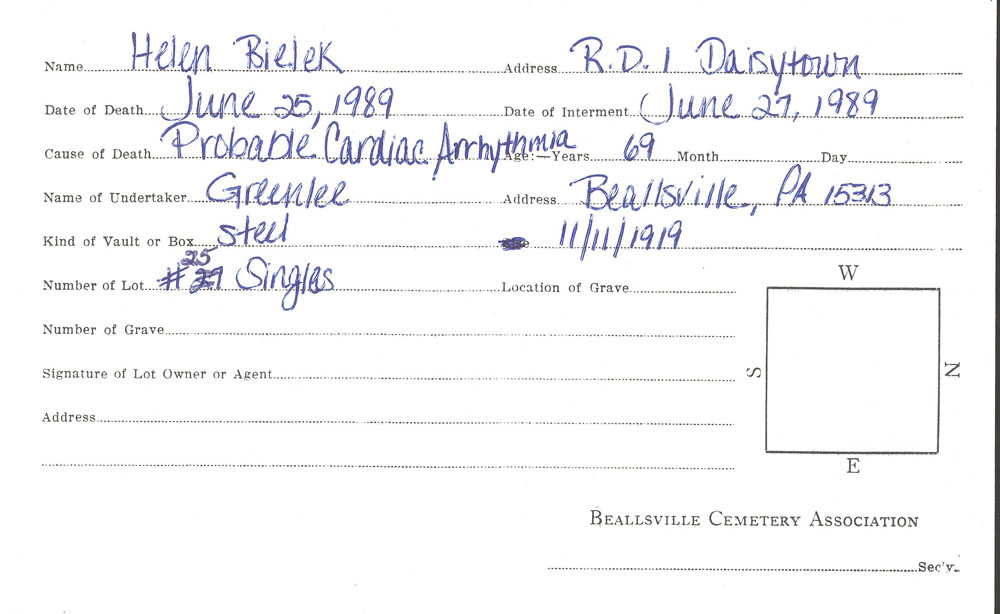 Name Helen Bielek Address R.D. 1 Daisytown
Date of Death June 25, 1989 Date of Interment June 27, 1989
Cause of Death Probable Cardiac Arrhythmia Age:—Years 69 Month Day
Name of Undertaker Greenlee Address Beallsville, PA 15313
Kind of Vault or Box Steel 11/11/1919
25
Number of Lot # 27 Singles Location of Grave
W
Number of Grave
Signature of Lot Owner or Agent
S N
Address
E
BEALLSVILLE CEMETERY ASSOCIATION
Sec'y.